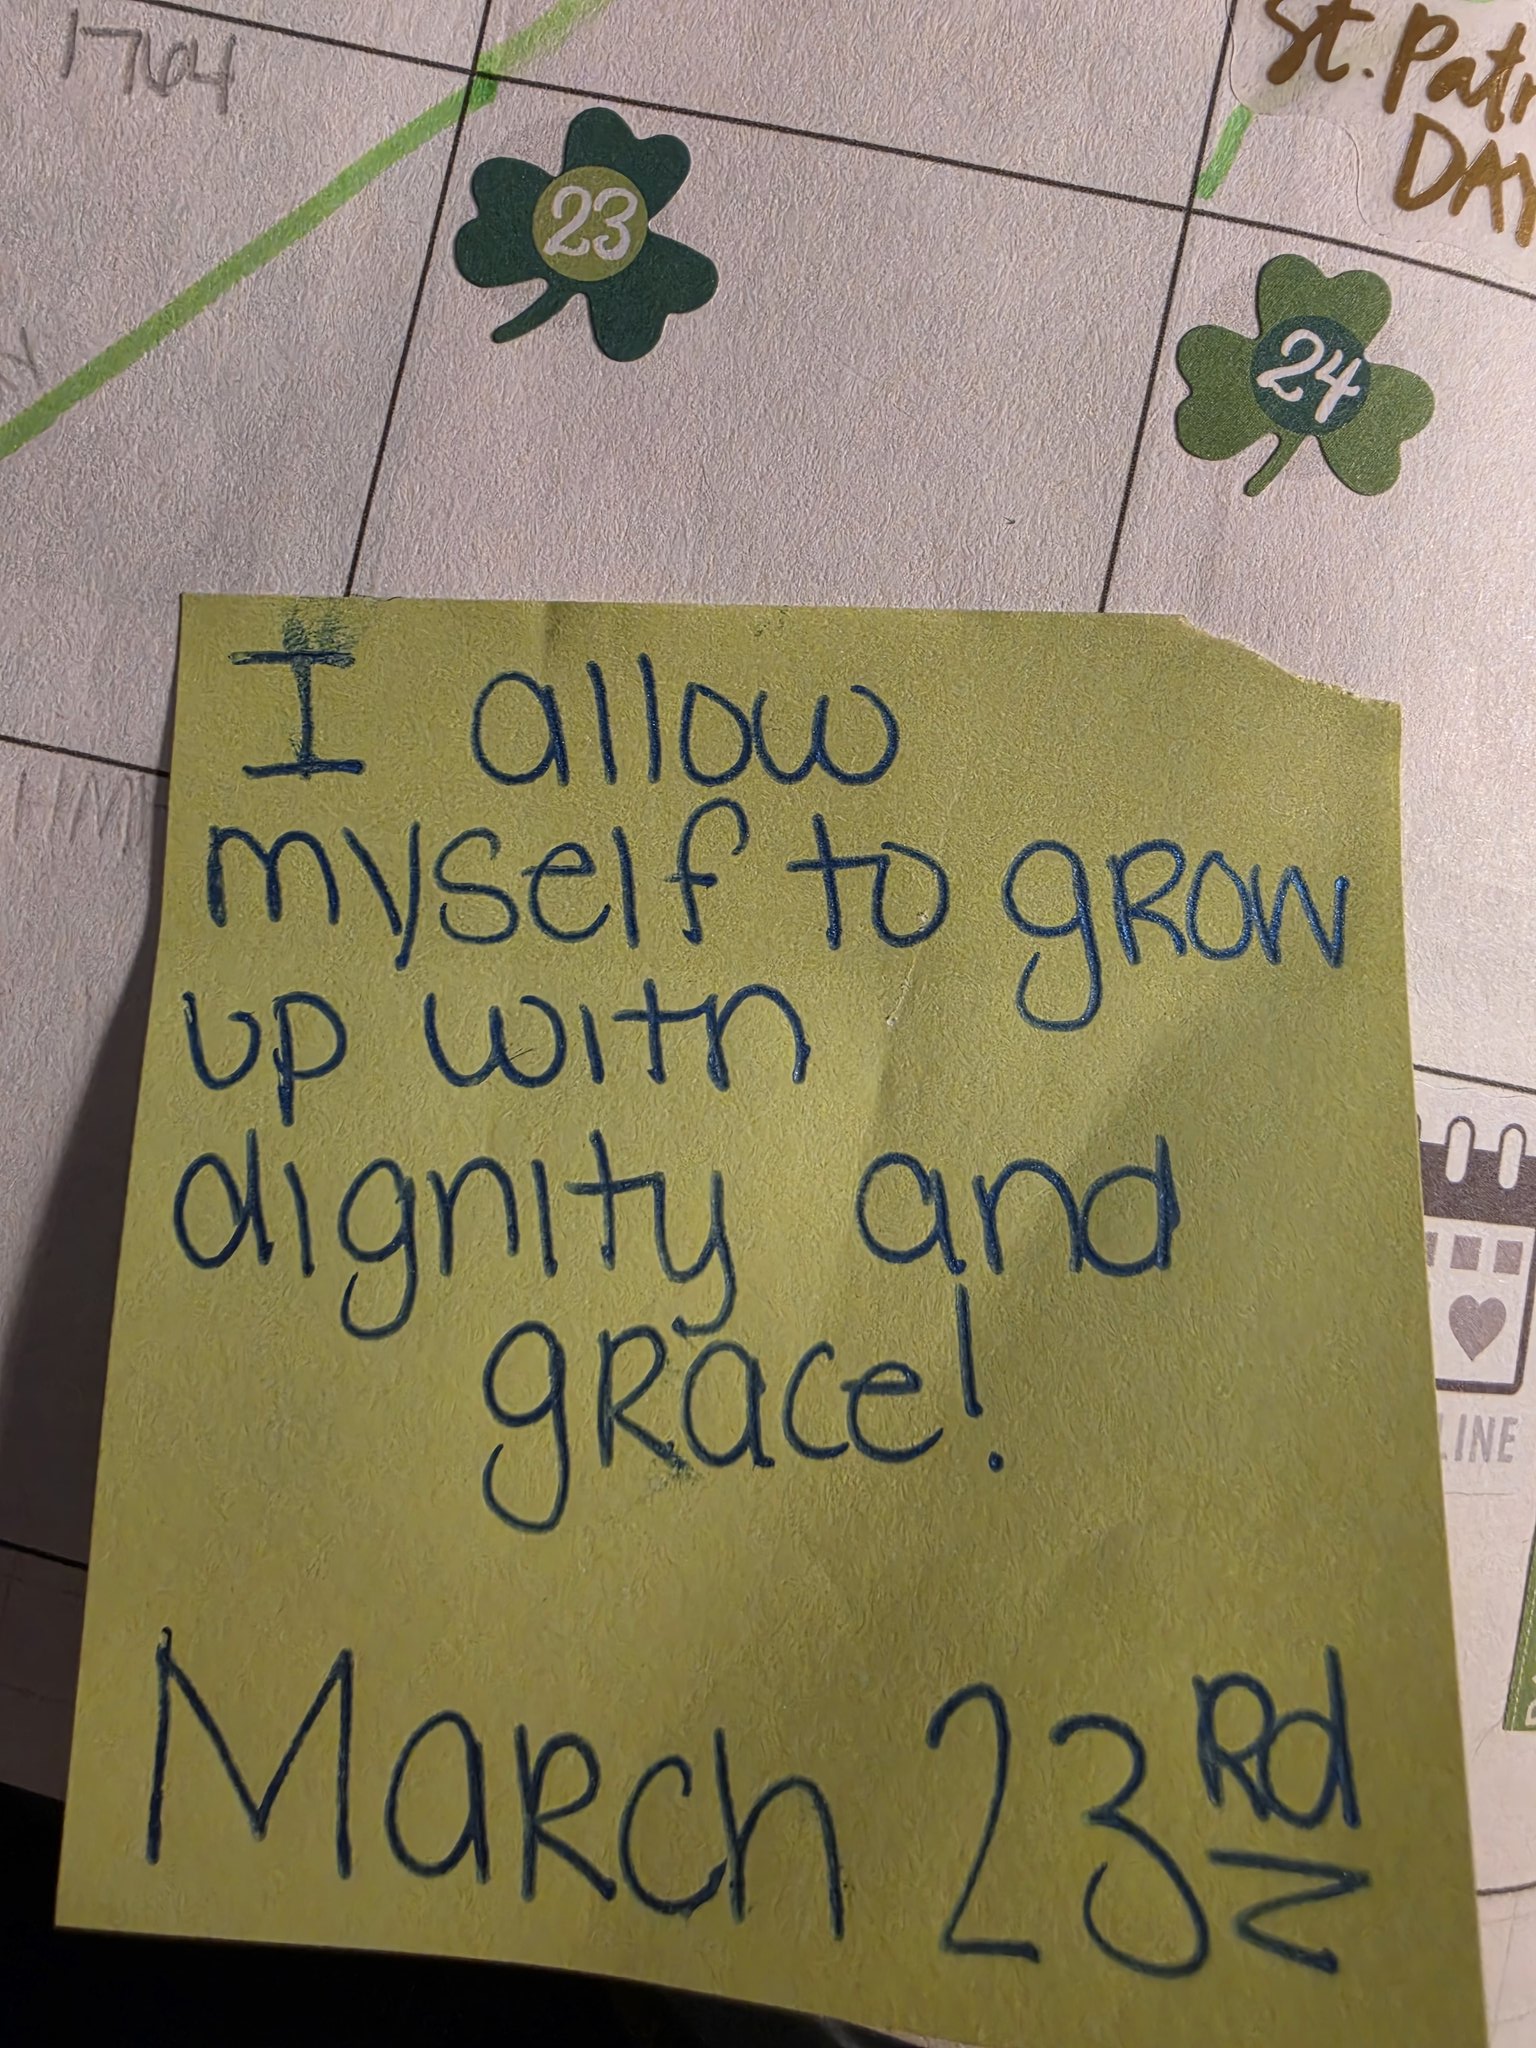 1764
St. Patr
DAY
23
24
I allow
myself to grow
up with
dignity and
grace!
March 23rd
LINE